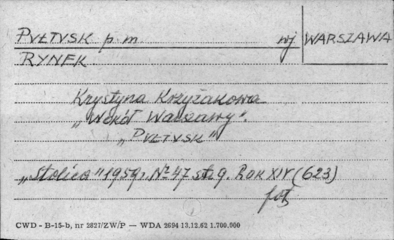 PUŁTUSK p.m. wj WARSZAWA
RYNEK
Krystyna Krzyżakowa
„Wokół Warszawy".
„PUŁTUSK"
„Stolica" 1959r. Nr 47 str 9. Rok XIV (623)
fot
CWD - B-15-b, nr 2827/ZW/P — WDA 2694 13.12.62 1.700.000